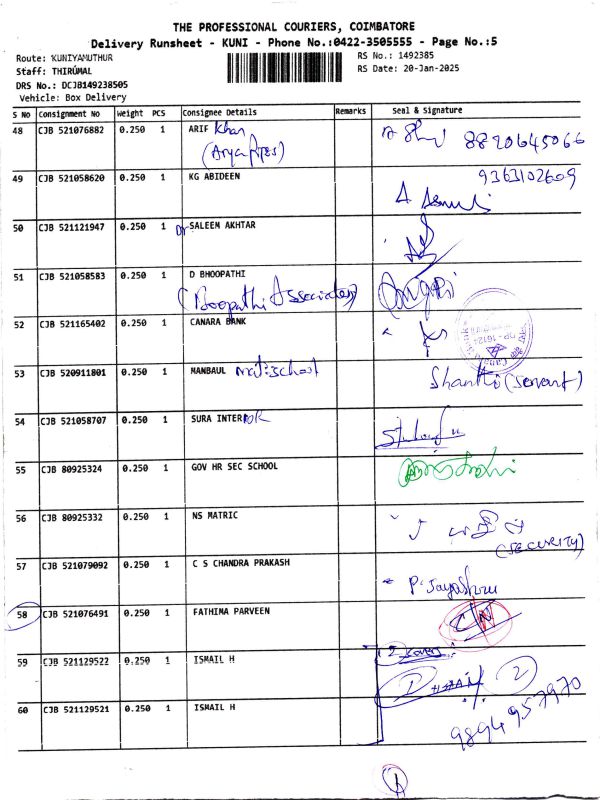 THE PROFESSIONAL COURIERS, COIMBATORE
Delivery Runsheet - KUNI - Phone No.:0422-3505555 - Page No.:5
Route: KUNIYAMUTHUR
Staff: THIRUMAL
DRS No.: DCJB149238505
Vehicle: Box Delivery
RS No.: 1492385
RS Date: 20-Jan-2025
S No Consignment No Weight PCS Consignee Details Remarks Seal & Signature
48 CJB 521076882 0.250 1 ARIF Khan 8820645066
49 CJB 521058620 0.250 1 KG ABIDEEN 9363102609
50 CJB 521121947 0.250 1 Dr SALEEM AKHTAR
51 CJB 521058583 0.250 1 D BHOOPATHI
(Boopathi Associates)
52 CJB 521165402 0.250 1 CANARA BANK
53 CJB 520911801 0.250 1 MANBAUL school Shanthi (Servant)
54 CJB 521058707 0.250 1 SURA INTER
55 CJB 80925324 0.250 1 GOV HR SEC SCHOOL
56 CJB 80925332 0.250 1 NS MATRIC
(SECURITY)
57 CJB 521079092 0.250 1 C S CHANDRA PRAKASH P. Jayashree
58 CJB 521076491 0.250 1 FATHIMA PARVEEN
59 CJB 521129522 0.250 1 ISMAIL H 2 Covers
2
60 CJB 521129521 0.250 1 ISMAIL H 9894957970